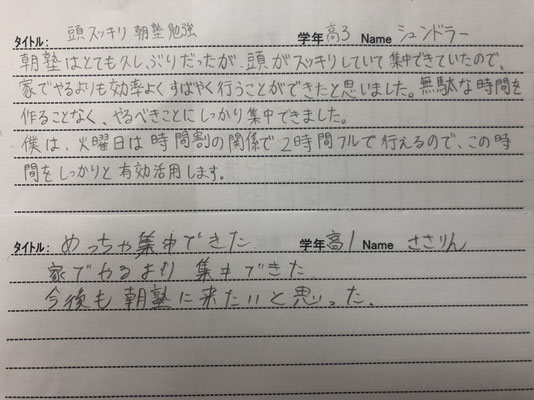 タイトル: 頭スッキリ 朝塾勉強 学年 高3 Name シュンドラー
朝塾はとても久しぶりだったが、頭がスッキリしていて集中できていたので、
家でやるよりも効率よくすばやく行うことができたと思いました。無駄な時間を
作ることなく、やるべきことにしっかり集中できました。
僕は、火曜日は時間割の関係で2時間フルで行えるので、この時
間をしっかりと有効活用します。
タイトル: めっちゃ集中できた 学年 高1 Name ささりん
家でやるより集中できた
今後も朝塾に来たいと思いった。